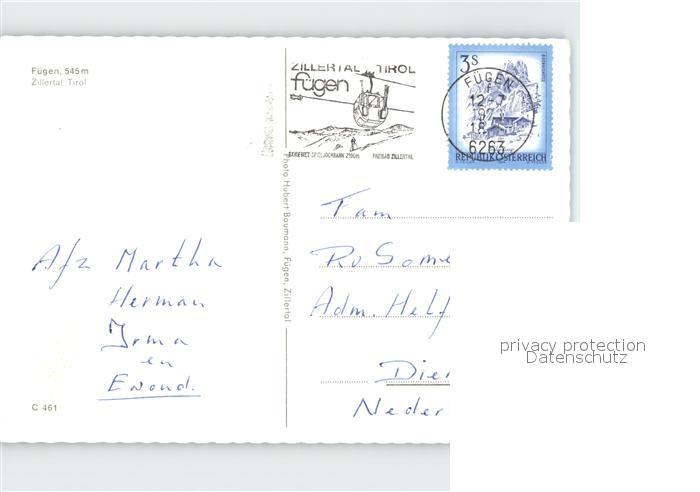 Fügen, 545m
Zillertal, Tirol
ZILLERTAL TIROL
fügen
SKIGEBIET SPIELJOCHBAHN 2100m FREIBAD ZILLERTAL
3S
REPUBLIK ÖSTERREICH
FÜGEN
6263
Photo Hubert Baumann, Fügen, Zillertal
Fam
Rv Some
Adm. Helf
Dier
Neder
Afz Martha
Herman
Irma
en
Ewoud.
C 461
privacy protection
Datenschutz